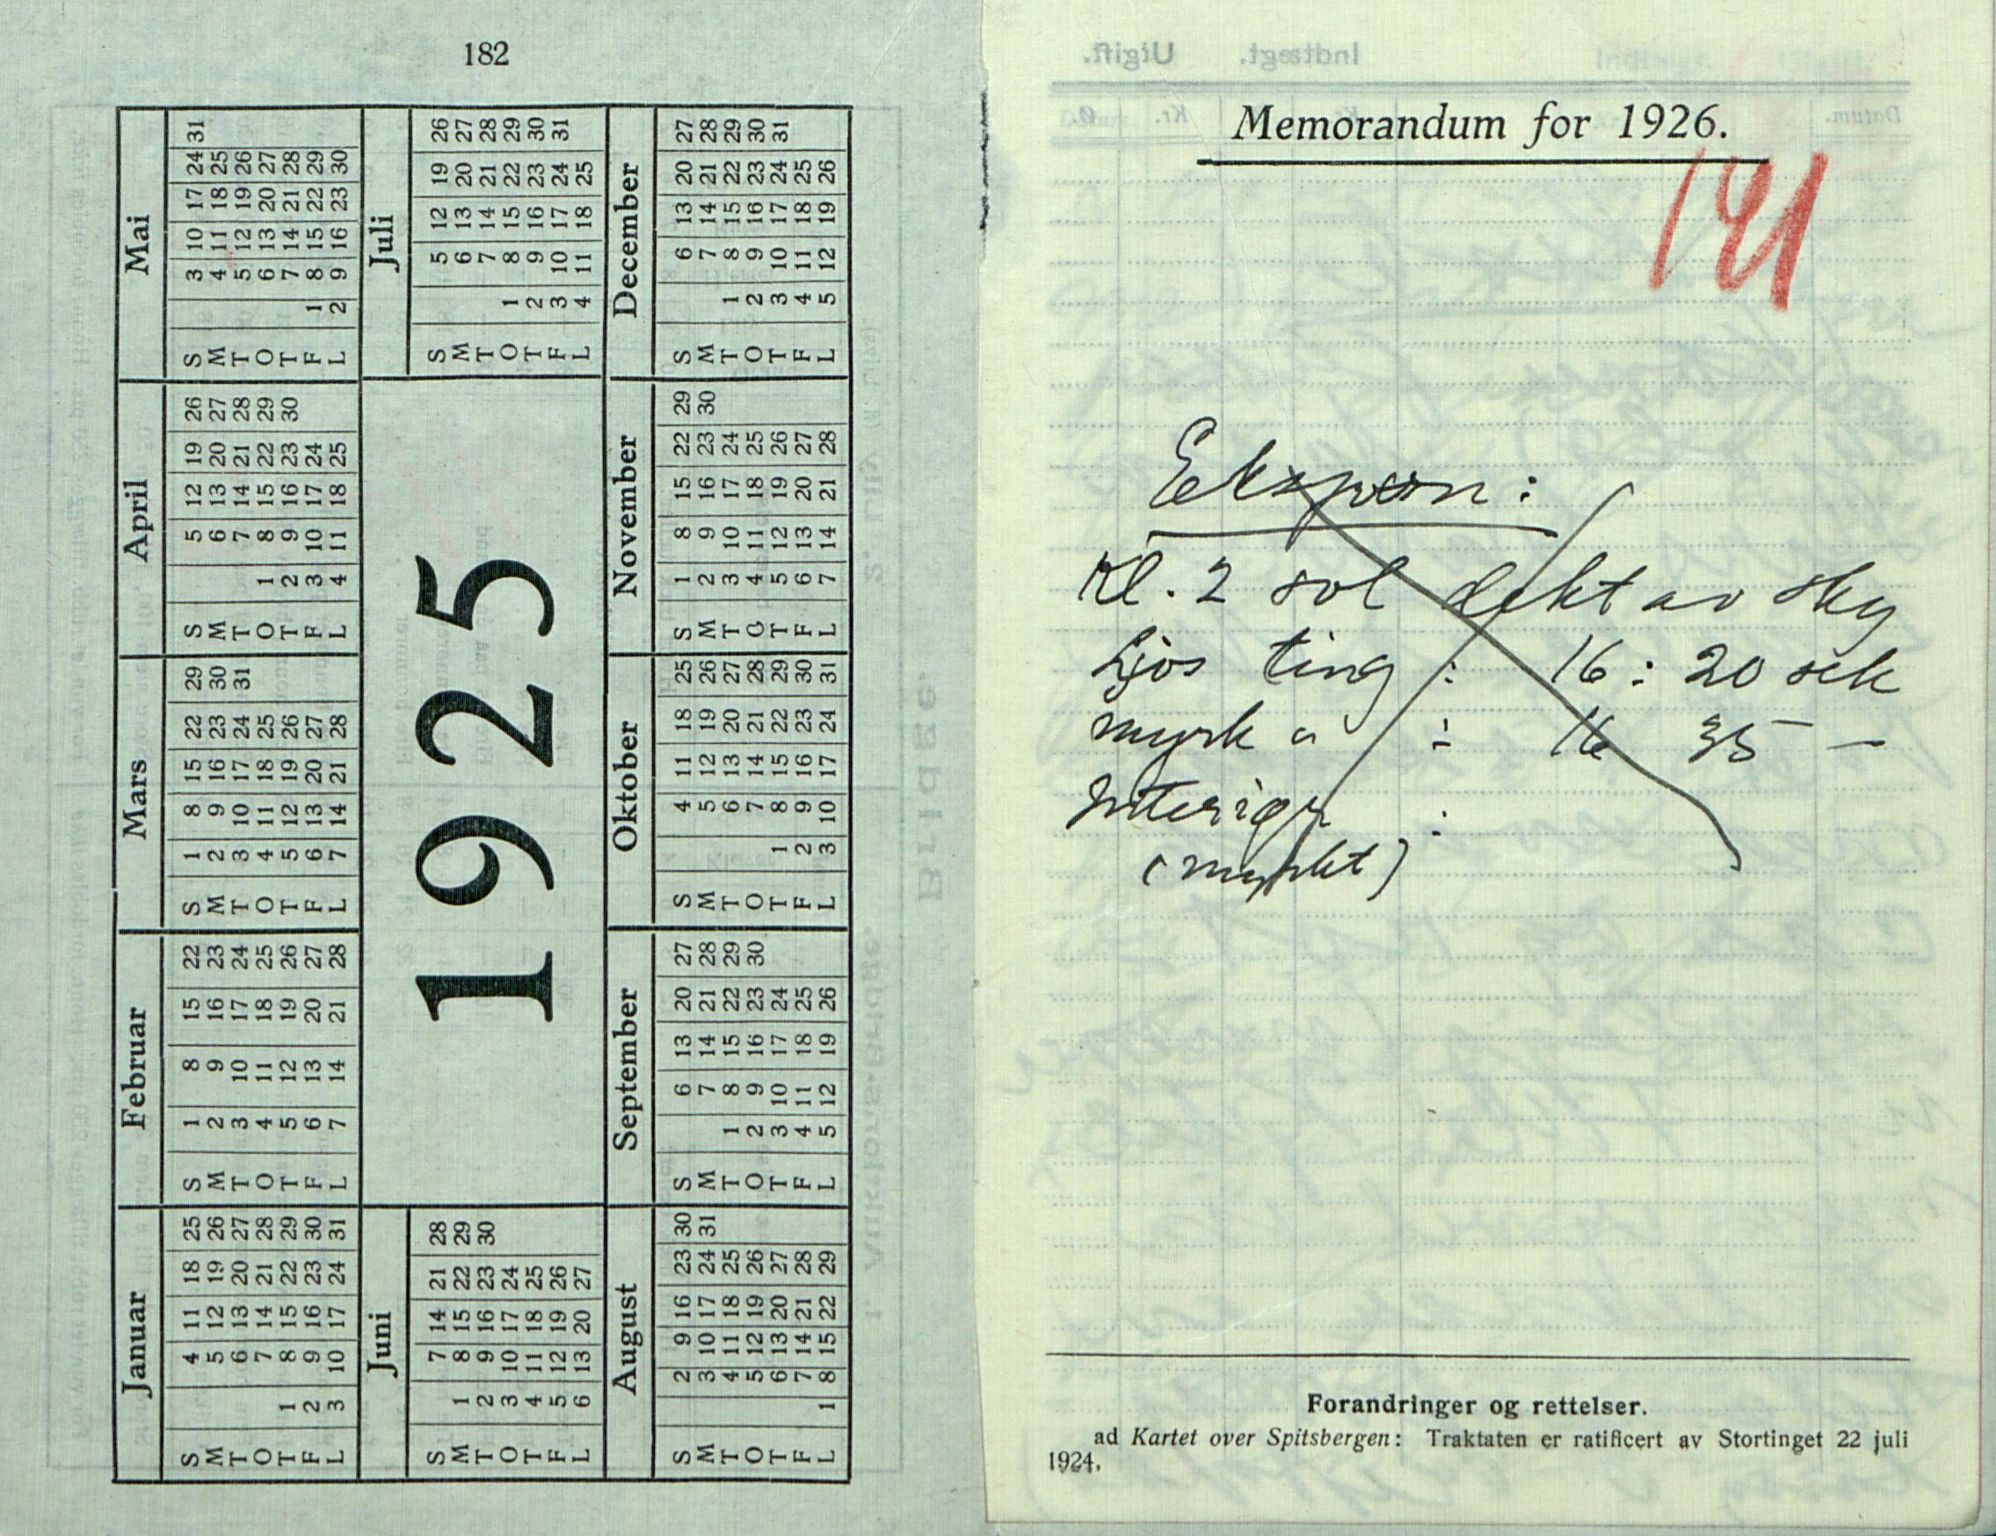 182
Mai
S 3 10 17 24 31
M 4 11 18 25
T 5 12 19 26
O 6 13 20 27
T 7 14 21 28
F 1 8 15 22 29
L 2 9 16 23 30
Juli
S 5 12 19 26
M 6 13 20 27
T 7 14 21 28
O 1 8 15 22 29
T 2 9 16 23 30
F 3 10 17 24 31
L 4 11 18 25
December
S 6 13 20 27
M 7 14 21 28
T 1 8 15 22 29
O 2 9 16 23 30
T 3 10 17 24 31
F 4 11 18 25
L 5 12 19 26
April
S 5 12 19 26
M 6 13 20 27
T 7 14 21 28
O 1 8 15 22 29
T 2 9 16 23 30
F 3 10 17 24
L 4 11 18 25
1925
November
S 1 8 15 22 29
M 2 9 16 23 30
T 3 10 17 24
O 4 11 18 25
T 5 12 19 26
F 6 13 20 27
L 7 14 21 28
Mars
S 1 8 15 22 29
M 2 9 16 23 30
T 3 10 17 24 31
O 4 11 18 25
T 5 12 19 26
F 6 13 20 27
L 7 14 21 28
Oktober
S 4 11 18 25
M 5 12 19 26
T 6 13 20 27
O 7 14 21 28
T 1 8 15 22 29
F 2 9 16 23 30
L 3 10 17 24 31
Februar
S 1 8 15 22
M 2 9 16 23
T 3 10 17 24
O 4 11 18 25
T 5 12 19 26
F 6 13 20 27
L 7 14 21 28
September
S 6 13 20 27
M 7 14 21 28
T 1 8 15 22 29
O 2 9 16 23 30
T 3 10 17 24
F 4 11 18 25
L 5 12 19 26
Januar
S 4 11 18 25
M 5 12 19 26
T 6 13 20 27
O 7 14 21 28
T 1 8 15 22 29
F 2 9 16 23 30
L 3 10 17 24 31
Juni
S 7 14 21 28
M 1 8 15 22 29
T 2 9 16 23 30
O 3 10 17 24
T 4 11 18 25
F 5 12 19 26
L 6 13 20 27
August
S 2 9 16 23 30
M 3 10 17 24 31
T 4 11 18 25
O 5 12 19 26
T 6 13 20 27
F 7 14 21 28
L 1 8 15 22 29
Memorandum for 1926.
191
Ekspon:
Kl. 2 sol dekt av sky
Ljos ting : 16 : 20 sek
myrk " : 16 35 —
Interiør :
(myrkt)
Forandringer og rettelser.
ad Kartet over Spitsbergen: Traktaten er ratificert av Stortinget 22 juli
1924.